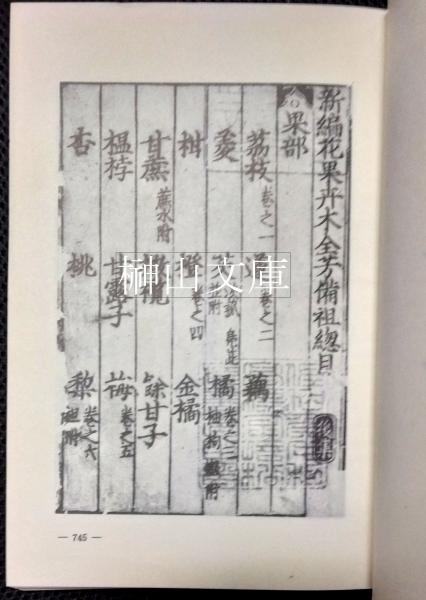 新編花果卉木全芳備祖總目
後集
果部
荔枝 卷之一 蓮 卷之二 藕
菱 芡 橘 卷之三
柑 橙 卷之四 金橘
甘蔗 蔗水附 餘甘子
榲桲 甘露子 梅 卷之五
杏 桃 梨 卷之六
榊山文庫
— 745 —